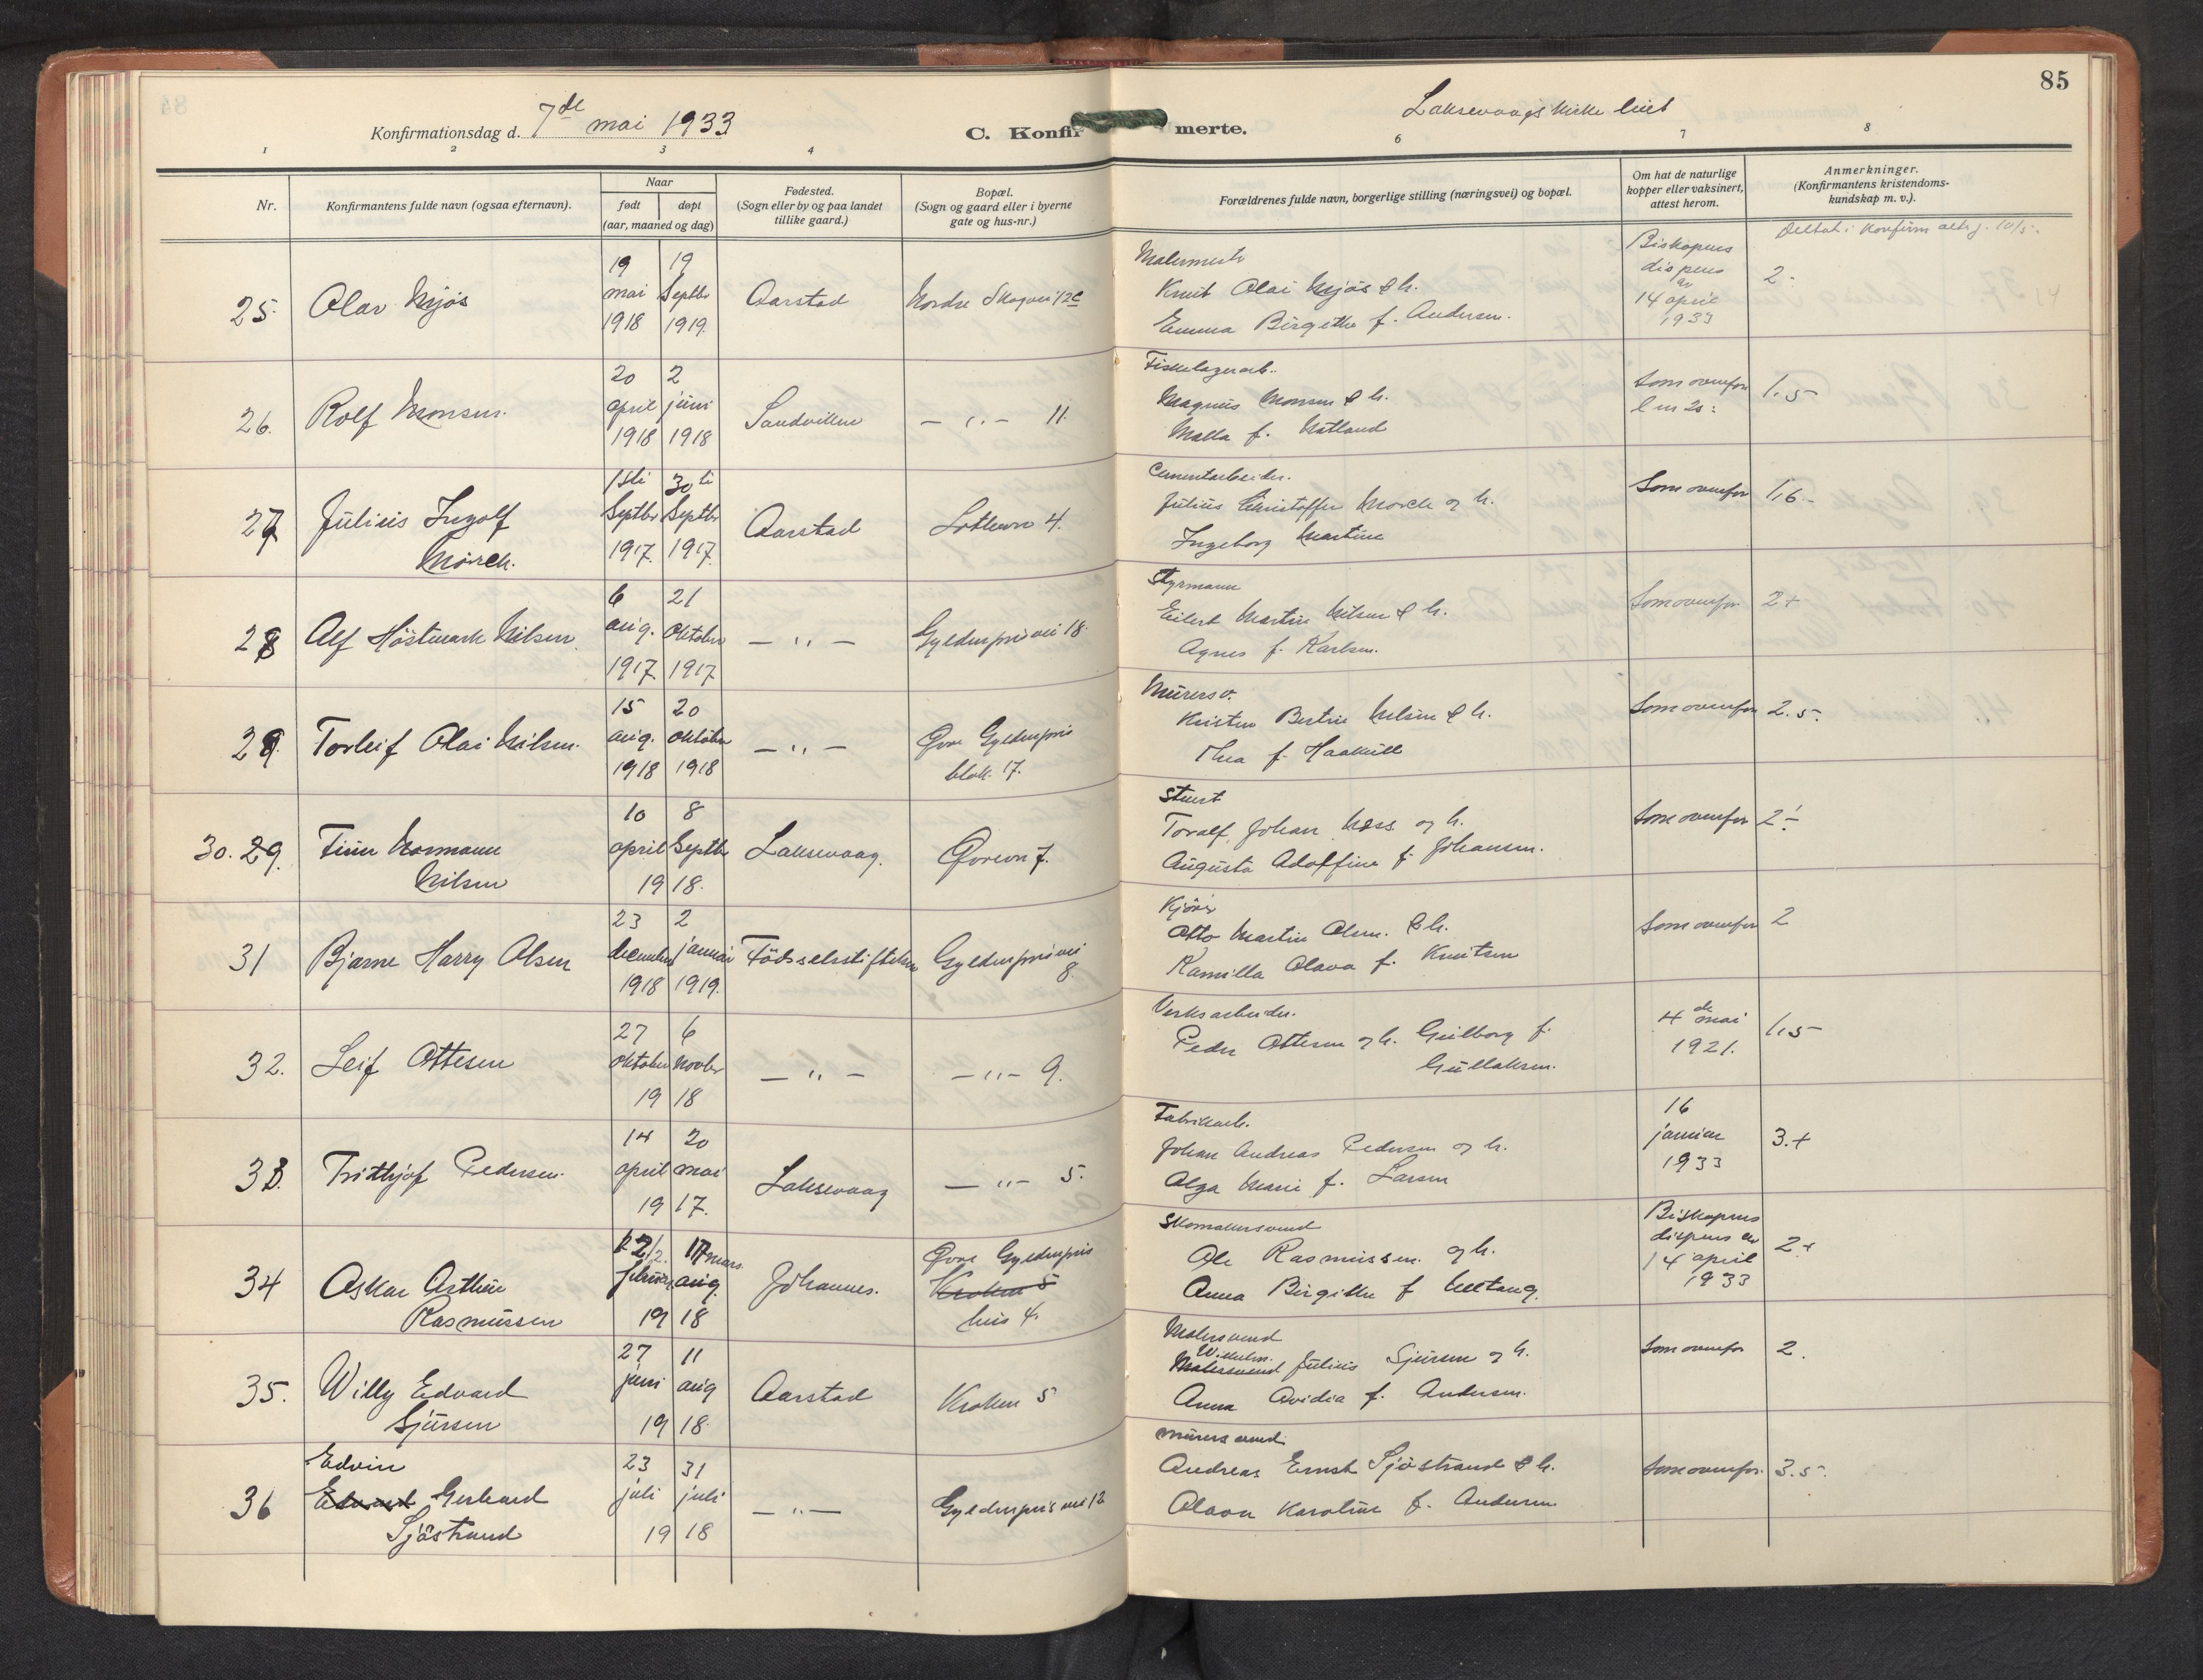 85
Konfirmationsdag d. 7de mai 1933
C. Konfir merte.
Laksevaags kirke
1 2 3 4 6 7 8
Nr.
Konfirmantens fulde navn (ogsaa efternavn).
Naar
født døpt
(aar, maaned og dag)
Fødested.
(Sogn eller by og paa landet
tillike gaard.)
Bopæl.
(Sogn og gaard eller i byerne
gate og hus-nr.)
Forældrenes fulde navn, borgerlige stilling (næringsvei) og bopæl.
Om hat de naturlige
kopper eller vaksinert,
attest herom.
Anmerkninger.
(Konfirmantens kristendoms-
kundskap m. v.).
25. Olav Mjøs
19 mai 1918
19 Septbr 1919.
Aarstad
Nordre Skogvei 12c
Malermestr
Knut Olai Mjøs & h.
Emma Birgithe f. Andersen.
Biskopens
dispens
av
14 april
1933
2-
26. Rolf Monsen.
20 april 1918
2 juni 1918
Sandviken
— " — 11.
Fiskelagerarb.
Magnus Monsen & h.
Malla f. Natland
Som ovenfor
1,5
27 Julius Ingolf
Mörch.
Septbr 1917.
30 Septbr 1917.
Aarstad
4.
Cementarbeider.
Julius Christoffer Mörch og h.
Ingeborg Martine
Som ovenfor
1,6-
28 Alf Höstmark Nilsen.
6 aug. 1917
21 Oktober 1917
— " —
Gyldenpris vei 18.
Styrmann
Eilert Martin Nilsen & h.
Agnes f. Karlsen.
Som ovenfor
2+
29. Torleif Olai Nilsen.
15 aug. 1918
20 oktober 1918
— " —
Øvre Gyldenpris
blok. 17.
Murersv.
Kristen Bertin Nilsen & h.
Thea f.
Som ovenfor
2.5.
30. 29. Finn Normann
Nilsen
10 april
8 Septbr
19 18.
Laksevaag.
7.
Stuert
Toralf Johan Næss og h.
Augusta Adolfine f. Johansen.
Som ovenfor
2-
31 Bjarne Harry Olsen
23 december 1918
2 januar 1919.
Födselsstiftelsen
Gyldenpris vei
8.
Kjörer
Otto Martin Olsen. & h.
Kamilla Olava f. Knutsen
Som ovenfor
2
32. Leif Ottesen
27 oktober
6 Novbr
19 18
— " —
— " — 9.
Verksarbeider.
Peder Ottesen og h. Gulborg f.
Gullaksen.
4de mai
1921.
1,5
33. Fridthjof Pedersen.
14 april
20 mai
19 17.
Laksevaag
— " — 5.
Fabrikarb.
Johan Andreas Pedersen og h.
Olga Marie f. Larsen
16
januar
1933
3.+
34 Oskar Arthur
Rasmussen
februar
17 mars.
aug.
19 18
Johannes.
Øvre Gyldenpris
Kroken 5
hus 4.
Skomakersvend
Ole Rasmussen. og h.
Anna Birgitte f.
Biskopens
dispens av
14 april
1933
2+
35. Willy Edvard
Sjursen
27 juni
11 aug
19 18.
Aarstad
Kroken 5
Malersvend
Wilhelm.
Malersvend Julius Sjursen og h.
Anna Ovidia f. Andersen.
Som ovenfor
2.
36 Edvin
Edvard Gerhard
Sjöstrand
23 juli
31 juli
19 18
— " —
Gyldenpris vei 12
Murersvend
Andreas Ernst Sjöstrand & h.
Olava Karoline f. Andersen
Som ovenfor.
3.5.